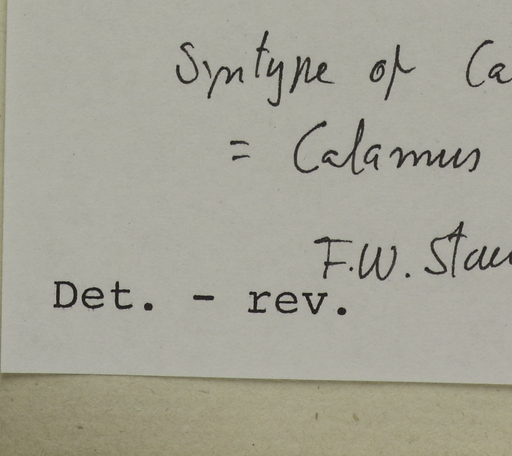 Syntype of Ca
= Calamus
F.W. Stau
Det. - rev.